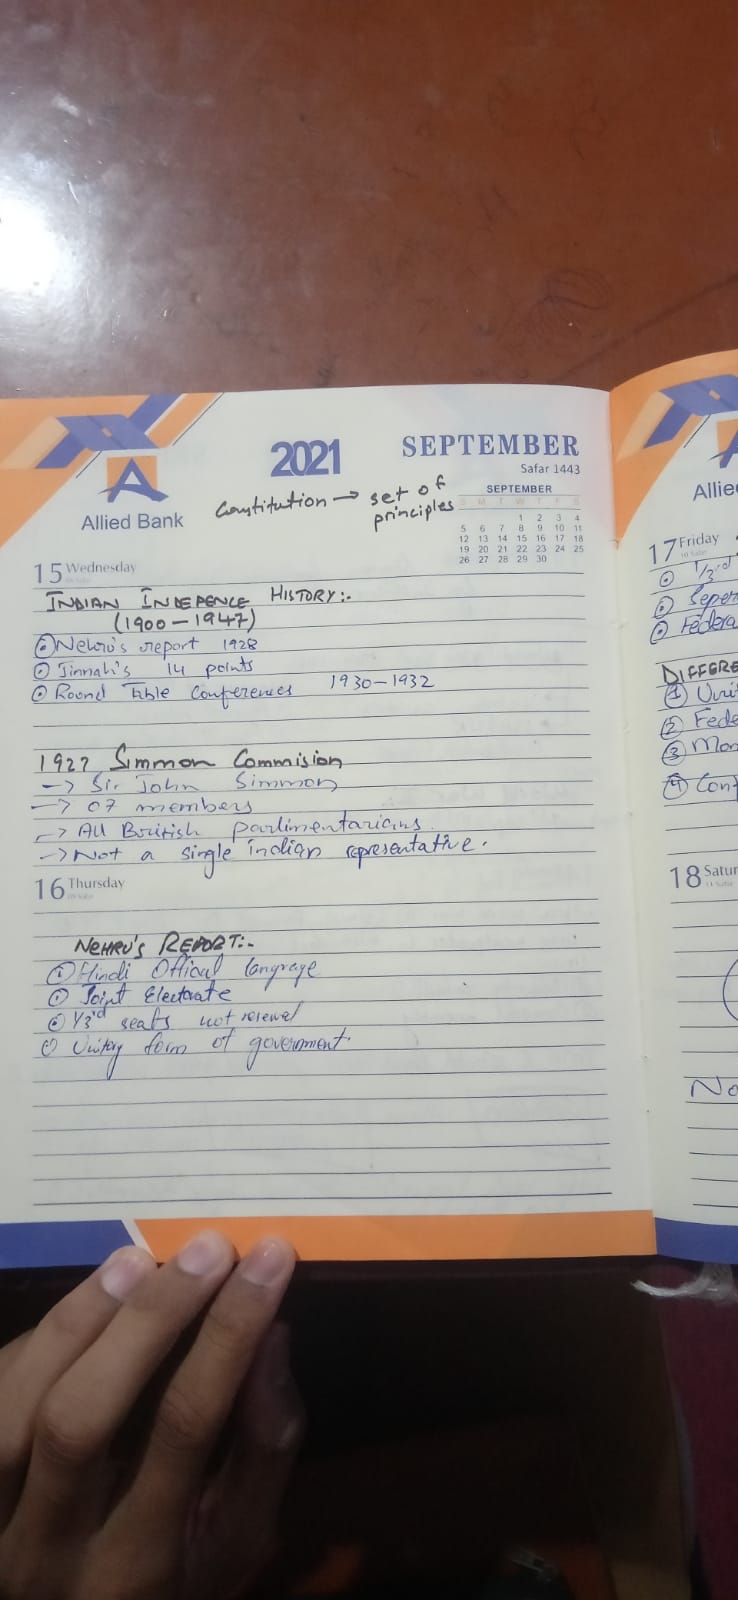 2021
SEPTEMBER
Safar 1443
Allied Bank
Constitution → set of
principles
SEPTEMBER
S M T W T F S
1 2 3 4
5 6 7 8 9 10 11
12 13 14 15 16 17 18
19 20 21 22 23 24 25
26 27 28 29 30
15 Wednesday
INDIAN INDEPENCE HISTORY:-
(1900-1947)
Nehru's report 1928
Jinnah's 14 points
Round Table Conferences 1930-1932
1927 Simmon Commision
→ Sir John Simmon
→ 07 members
→ All British parlimentarians.
→ Not a single indian representative.
16 Thursday
NEHRU'S REPORT:-
Hindi Offical langrage
Joint Electorate
1/3rd seats not renewal
Unitary form of government.
Allie
17 Friday
1/3rd
Seper
Federa
DIFFERE
① Uni
② Fede
③ Mon
④ Conf
18 Satur
No